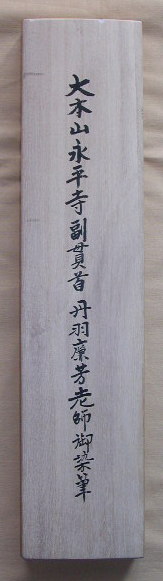 大本山永平寺副貫首丹羽廉芳老師御染筆